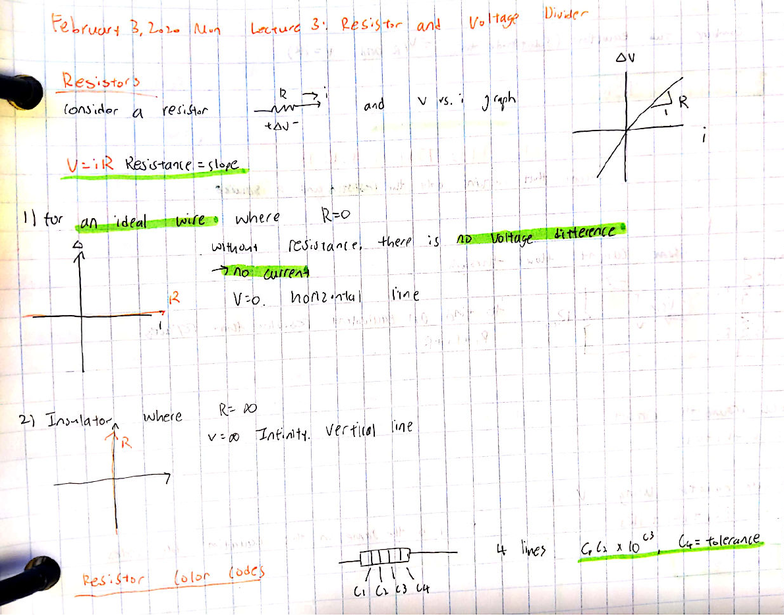 February 3, 2020 Mon Lecture 3: Resistor and Voltage Divider
Resistors
consider a resistor R → i +ΔV- and V vs. i graph
ΔV
R
i
V=iR Resistance = slope
1) for an ideal wire where R=0
without resistance, there is no voltage difference
→ no current
V=0. horizontal line
Δ
R
i
2) Insulator where R=∞
V=∞ Infinity. vertical line
R
4 lines C1C2 × 10^C3, C4 = tolerance
Resistor Color Codes
C1 C2 C3 C4